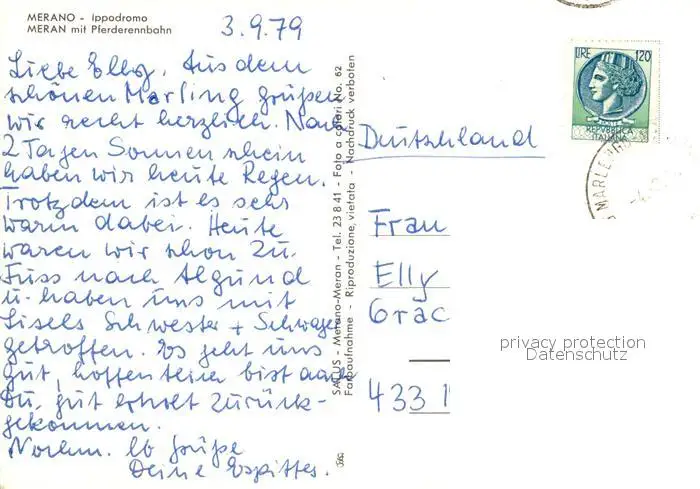 MERANO - Ippodromo
MERAN mit Pferderennbahn
3.9.79
Liebe Elly, Aus dem
schönen Marling grüßen
wir recht herzlich. Nach
2 Tagen Sonnenschein
haben wir heute Regen.
Trotzdem ist es sehr
warm dabei. Heute
waren wir schon zu
Fuss nach Algund
u. haben uns mit
Lisels Schwester + Schwager
getroffen. Es geht uns
gut, hoffentlich bist auch
Du gut erholt zurück-
gekommen.
Nochm. lb Grüße
Deine
SALUS - Merano-Meran - Tel. 23 8 41 - Foto a colori No. 62
Farbaufnahme - Riproduzione vietata - Nachdruck verboten
LIRE 120
REPVBBLICA
ITALIANA
MARLENGO
Deutschland
Frau
Elly
Grac
433
privacy protection
Datenschutz